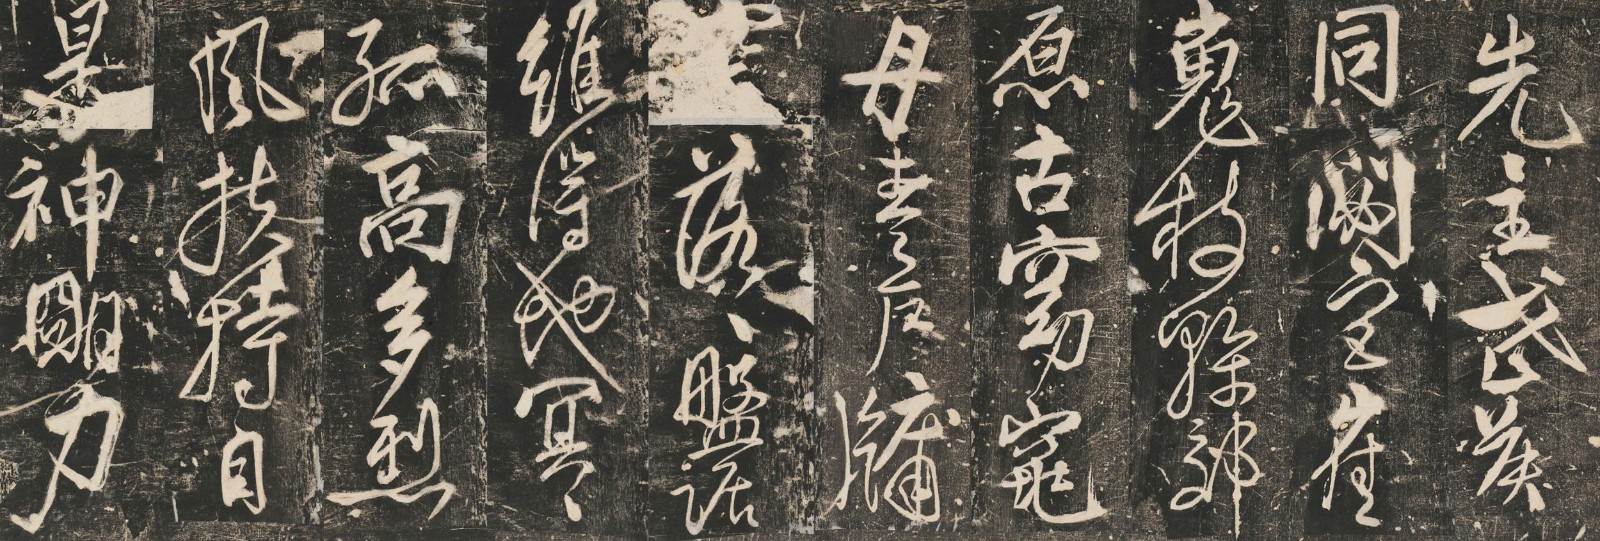 先主武侯
同閟宮崔
嵬枝幹郊
原古窈窕
丹青戶牖
落々盤踞
雖得地冥々
孤高多烈
風扶持自
是神明力